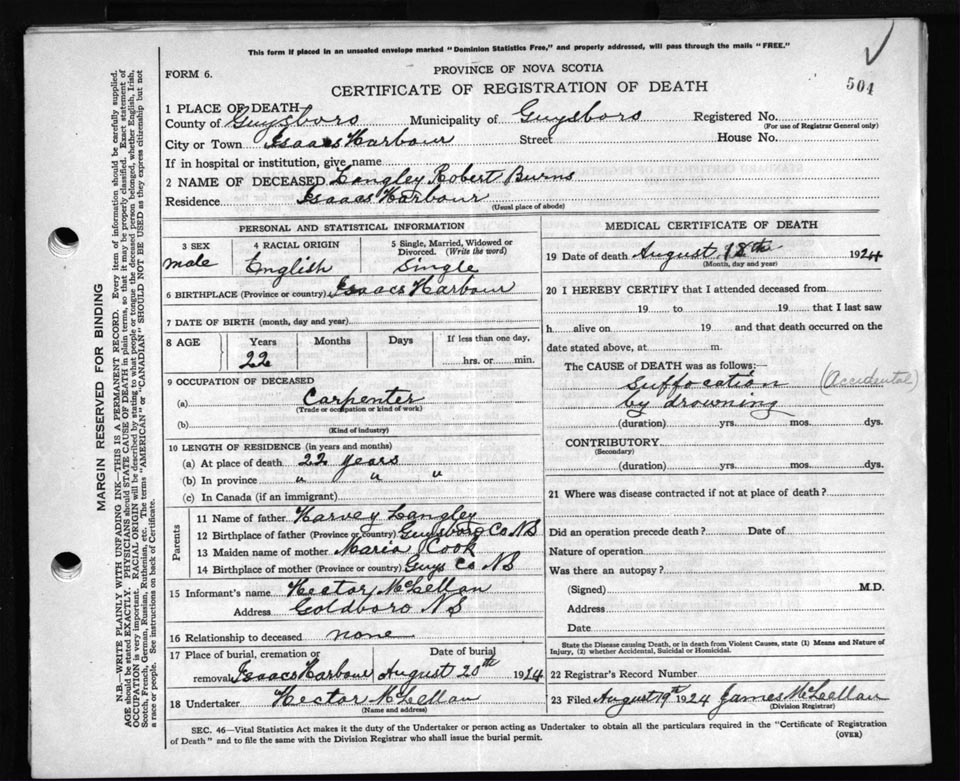 This form if placed in an unsealed envelope marked "Dominion Statistics Free," and properly addressed, will pass through the mails "FREE."
FORM 6.
PROVINCE OF NOVA SCOTIA
CERTIFICATE OF REGISTRATION OF DEATH
504
1 PLACE OF DEATH
County of Guysboro Municipality of Guysboro Registered No.
(For use of Registrar General only)
City or Town Isaacs Harbour Street House No.
If in hospital or institution, give name
2 NAME OF DECEASED Langley Robert Burns
Residence Isaacs Harbour
(Usual place of abode)
PERSONAL AND STATISTICAL INFORMATION
3 SEX 4 RACIAL ORIGIN 5 Single, Married, Widowed or Divorced. (Write the word)
male English Single
6 BIRTHPLACE (Province or country) Isaacs Harbour
7 DATE OF BIRTH (month, day and year)
8 AGE Years Months Days If less than one day,
22 hrs. or min.
9 OCCUPATION OF DECEASED
(a) Carpenter
(Trade or occupation or kind of work)
(b)
(Kind of industry)
10 LENGTH OF RESIDENCE (in years and months)
(a) At place of death 22 years
(b) In province " " "
(c) In Canada (if an immigrant)
Parents
11 Name of father Harvey Langley
12 Birthplace of father (Province or country) Guysboro Co NS
13 Maiden name of mother Maria Cook
14 Birthplace of mother (Province or country) Guys Co NS
15 Informant's name Hector McLellan
Address Goldboro NS
16 Relationship to deceased none
17 Place of burial, cremation or removal Date of burial
Isaacs Harbour August 20th 1924
18 Undertaker Hector McLellan
(Name and address)
MEDICAL CERTIFICATE OF DEATH
19 Date of death August 18th 1924
(Month, day and year)
20 I HEREBY CERTIFY that I attended deceased from
19 to 19 that I last saw
h alive on 19 and that death occurred on the
date stated above, at m.
The CAUSE of DEATH was as follows:—
Suffocation (Accidental)
by drowning
(duration) yrs. mos. dys.
CONTRIBUTORY
(Secondary)
(duration) yrs. mos. dys.
21 Where was disease contracted if not at place of death?
Did an operation precede death? Date of
Nature of operation
Was there an autopsy?
(Signed) M.D.
Address
Date
State the Disease causing Death, or in death from Violent Causes, state (1) Means and Nature of
Injury, (2) whether Accidental, Suicidal or Homicidal.
22 Registrar's Record Number
23 Filed August 19th 1924 James McLellan
(Division Registrar)
SEC. 46—Vital Statistics Act makes it the duty of the Undertaker or person acting as Undertaker to obtain all the particulars required in the "Certificate of Registration
of Death" and to file the same with the Division Registrar who shall issue the burial permit.
(OVER)
MARGIN RESERVED FOR BINDING
N.B.—WRITE PLAINLY WITH UNFADING INK—THIS IS A PERMANENT RECORD. Every item of information should be carefully supplied.
AGE should be stated EXACTLY. PHYSICIANS should STATE CAUSE OF DEATH in plain terms, so that it may be properly classified. Exact statement of
OCCUPATION is very important. RACIAL ORIGIN will be described by stating to what people or tongue the deceased person belonged, whether English, Irish,
Scotch, French, German, Russian, Ruthenian, etc. The terms "AMERICAN" or "CANADIAN" SHOULD NOT BE USED as they express citizenship but not
a race or people. See instructions on back of Certificate.